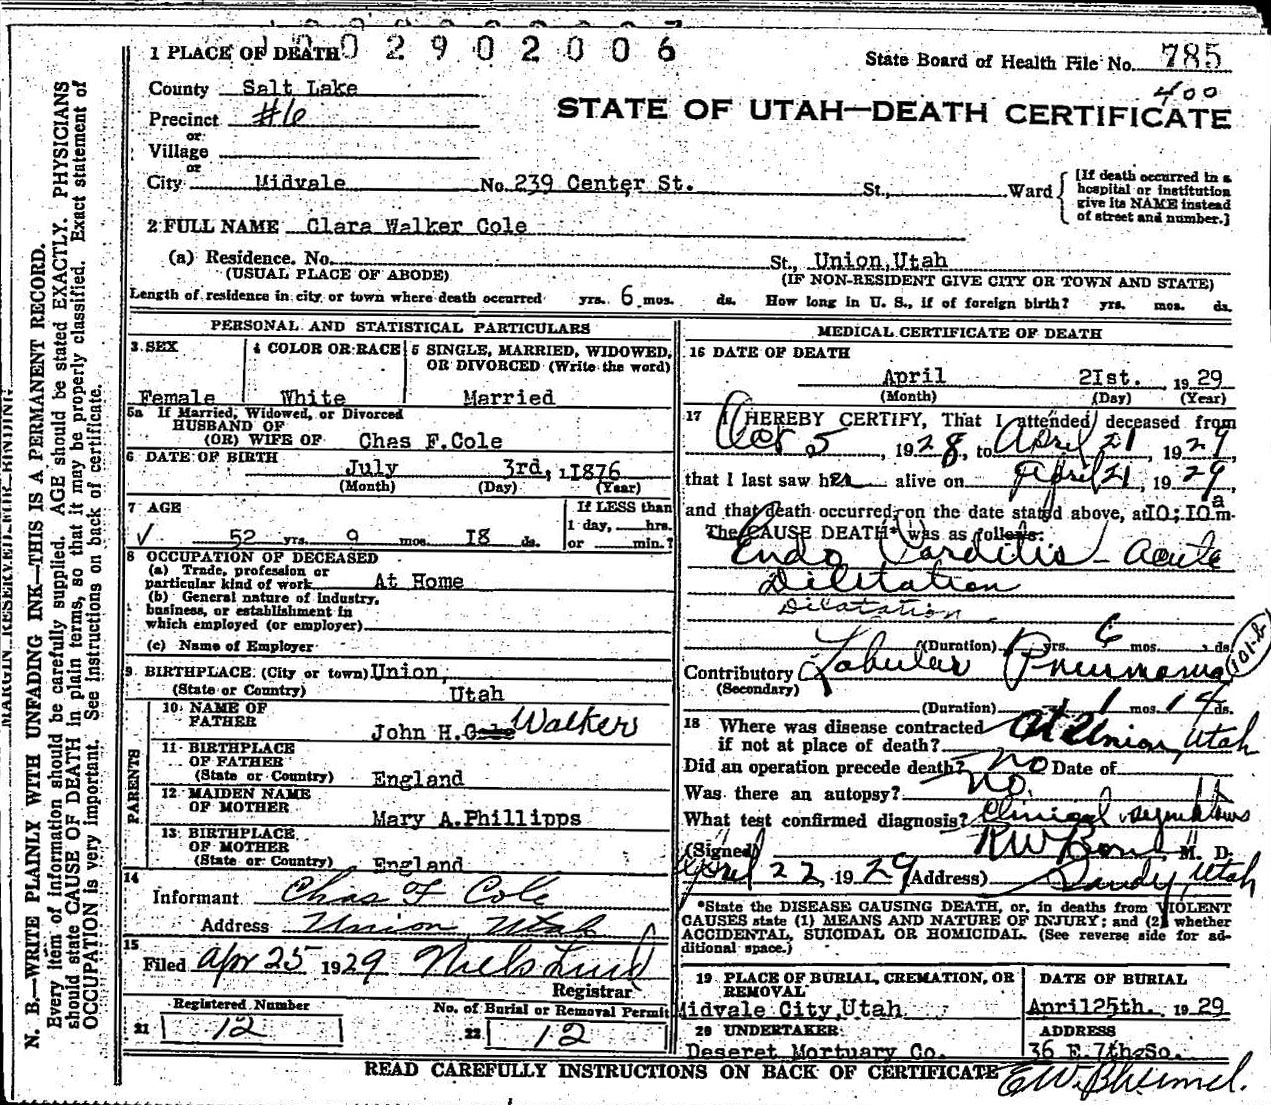 1 0 0 2 9 0 2 0 0 6
1 PLACE OF DEATH
State Board of Health File No. 785
400
County Salt Lake
STATE OF UTAH—DEATH CERTIFICATE
Precinct #6
or
Village
or
City Midvale No. 239 Center St. St., Ward
[If death occurred in a hospital or institution give its NAME instead of street and number.]
2 FULL NAME Clara Walker Cole
(a) Residence. No. St., Union, Utah
(USUAL PLACE OF ABODE) (IF NON-RESIDENT GIVE CITY OR TOWN AND STATE)
Length of residence in city or town where death occurred yrs. 6 mos. ds. How long in U. S., if of foreign birth? yrs. mos. ds.
PERSONAL AND STATISTICAL PARTICULARS
3 SEX
Female
4 COLOR OR RACE
White
5 SINGLE, MARRIED, WIDOWED, OR DIVORCED (Write the word)
Married
5a If Married, Widowed, or Divorced
HUSBAND OF
(OR) WIFE OF Chas F.Cole
6 DATE OF BIRTH
July 3rd, 1876
(Month) (Day) (Year)
7 AGE
If LESS than
1 day, hrs.
or min.?
✓ 52 yrs. 9 mos. 18 ds.
8 OCCUPATION OF DECEASED
(a) Trade, profession or
particular kind of work At Home
(b) General nature of industry,
business, or establishment in
which employed (or employer)
(c) Name of Employer
9 BIRTHPLACE (City or town) Union,
(State or Country) Utah
PARENTS
10 NAME OF
FATHER
John H.Cole Walker
11 BIRTHPLACE
OF FATHER
(State or Country) England
12 MAIDEN NAME
OF MOTHER Mary A.Phillipps
13 BIRTHPLACE
OF MOTHER
(State or Country) England
14
Informant Chas F Cole
Address Union Utah
15
Filed Apr 25 1929 Niels Lind
Registrar
Registered Number
21 12
No. of Burial or Removal Permit
22 12
MEDICAL CERTIFICATE OF DEATH
16 DATE OF DEATH
April 21st. , 1929
(Month) (Day) (Year)
17 I HEREBY CERTIFY, That I attended deceased from
5, 1928, to April 21, 1929,
that I last saw her alive on April 21, 1929,
and that death occurred, on the date stated above, at 10;10 a m.
The CAUSE DEATH* was as follows:
Endo Carditis - Acute
Dilitation
Dilatation
(Duration) yrs. 6 mos. ds.
101-b
Contributory Lobular Pneumonia
(Secondary)
(Duration) 1 mos. 14 ds.
18 Where was disease contracted
if not at place of death? At Union, Utah
Did an operation precede death? no Date of
Was there an autopsy? no.
What test confirmed diagnosis? Clinical symptoms
(Signed) M. D.
April 22, 1929 (Address) Sandy, Utah
*State the DISEASE CAUSING DEATH, or, in deaths from VIOLENT
CAUSES state (1) MEANS AND NATURE OF INJURY; and (2) whether
ACCIDENTAL, SUICIDAL OR HOMICIDAL. (See reverse side for ad-
ditional space.)
19 PLACE OF BURIAL, CREMATION, OR
REMOVAL
Midvale City, Utah
DATE OF BURIAL
April 25th. 1929
20 UNDERTAKER
Deseret Mortuary Co.
ADDRESS
36 E.7th So.
READ CAREFULLY INSTRUCTIONS ON BACK OF CERTIFICATE
MARGIN RESERVED FOR BINDING
N. B.—WRITE PLAINLY WITH UNFADING INK—THIS IS A PERMANENT RECORD.
Every item of information should be carefully supplied. AGE should be stated EXACTLY. PHYSICIANS
should state CAUSE OF DEATH in plain terms, so that it may be properly classified. Exact statement of
OCCUPATION is very important. See instructions on back of certificate.